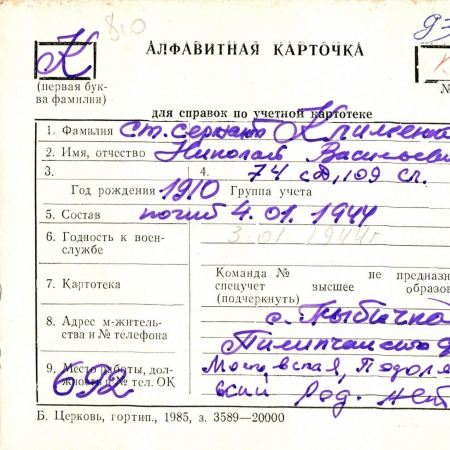 810
К
АЛФАВИТНАЯ КАРТОЧКА
(первая бук-
ва фамилии)
№
для справок по учетной картотеке
1. Фамилия ст. сержант Клименко
2. Имя, отчество Николай Васильеви
3. 4. 74 сд, 109 сп.
Год рождения 1910 Группа учета
5. Состав погиб 4.01.1944
6. Годность к воен-
службе
3.01.1944г
7. Картотека
Команда № не предназн
спецучет высшее образов
(подчеркнуть)
8. Адрес м-житель-
ства и № телефона
с.
9. Место работы, дол-
жность и № тел. ОК
692
Московская, Подоль
ский Род.
Б. Церковь, гортип., 1985, з. 3589—20000